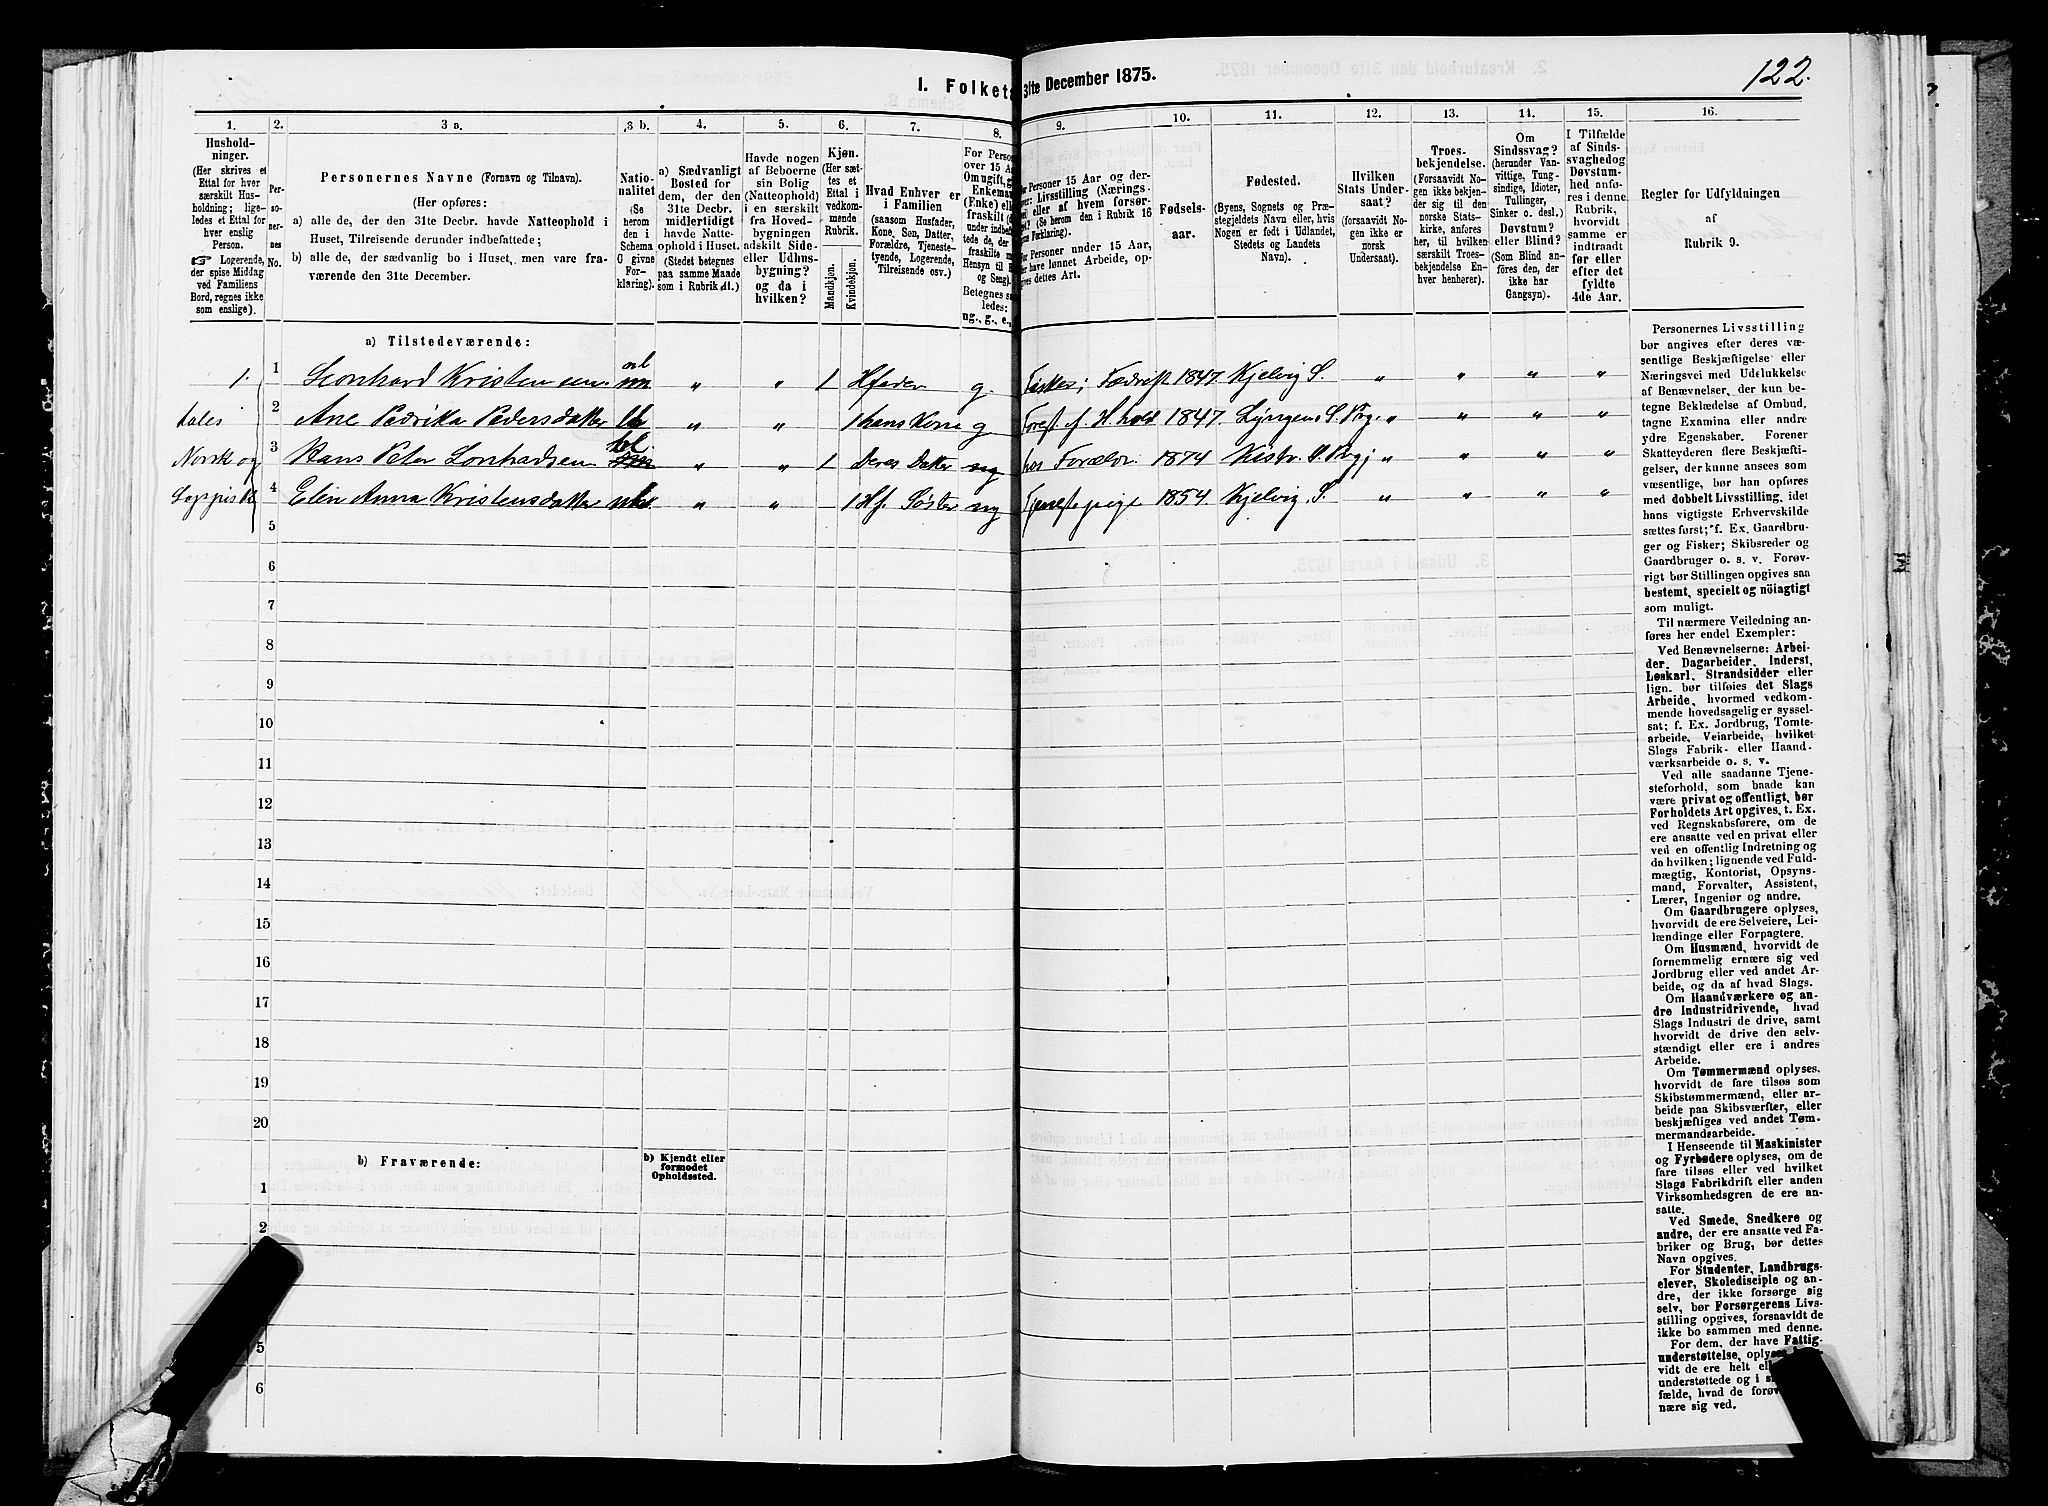 I. Folketæ
31te December 1875.
122.
1.
2.
3 a.
3 b.
4.
5.
6.
7.
8.
9.
10.
11.
12.
13.
14.
15.
16.
Hushold-
ninger.
(Her skrives et
Ettal for hver
særskilt Hus-
holdning; lige-
ledes et Ettal for
hver enslig
Person.
Logerende,
der spise Middag
ved Familiens
Bord, regnes ikke
som enslige).
Per-
so-
ner-
nes
No.
Personernes Navne (Fornavn og Tilnavn).
(Her opføres:
a) alle de, der den 31te Decbr. havde Natteophold i
Huset, Tilreisende derunder indbefattede;
b) alle de, der sædvanlig bo i Huset, men vare fra-
værende den 31te December.
Natio-
nalitet
(Se
herom
den i
Schema
C givne
For-
klaring).
a) Sædvanligt
Bosted for
dem, der den
31te Decbr.
midlertidigt
havde Natte-
ophold i Huset.
(Stedet betegnes
paa samme Maade
som i Rubrik 11.)
Havde nogen
af Beboerne
sin Bolig
(Natteophold)
i en særskilt
fra Hoved-
bygningen
adskilt Side-
eller Udhus-
bygning?
og da i
hvilken?
Kjøn.
(Her sæt-
tes et
Ettal i
vedkom-
mende
Rubrik.
Mandkjøn.
Kvindekjøn.
Hvad Enhver er
i Familien
(saasom Husfader,
Kone, Søn, Datter,
Forældre, Tjeneste-
tyende, Logerende,
Tilreisende osv.)
For Person
over 15 Aa
Om ugift, g
Enkeman
(Enke) ell
fraskilt (d
under indbe
tede de, de
fraskilte n
Hensyn til B
og Seng).
Betegnes s
ledes:
ug., g., e.,
For Personer 15 Aar og der-
over: Livsstilling (Nærings-
vei) eller af hvem forsør-
get? (Se herom den i Rubrik 16
givne Forklaring).
For Personer under 15 Aar,
der have lønnet Arbeide, op-
gives dettes Art.
Fødsels-
aar.
Fødested.
(Byens, Sognets og Præ-
stegjeldets Navn eller, hvis
Nogen er født i Udlandet,
Stedets og Landets
Navn).
Hvilken
Stats Under-
saat?
(forsaavidt No-
gen ikke er
norsk
Undersaat).
Troes-
bekjendelse.
(Forsaavidt No-
gen ikke bekjen-
der sig til den
norske Stats-
kirke, anføres
her, til hvilken
særskilt Troes-
bekjendelse En-
hver henhører).
Om
Sindssvag?
(herunder Van-
vittige, Tung-
sindige, Idioter,
Tullinger,
Sinker o. desl.)
Døvstum?
eller Blind?
(Som Blind an-
føres den, der
ikke har
Gangsyn).
I Tilfælde
af Sinds-
svaghed og
Døvstum-
hed anfø-
res i denne
Rubrik,
hvorvidt
samme er
indtraadt
før eller
efter det
fyldte
4de Aar.
Regler for Udfyldningen
af
Rubrik 9.
a) Tilstedeværende:
1. 1 Leonhard Kristensen nl „ „ 1 Hfader g. Fisker i Fædrift 1847 Kjelvig S. „ „ „ „
tales 2 Ane Pedrika Pedersdatter „ „ 1 hans Kone g. Forest. f. H.hold 1847. Lyngens S. Prg. „ „ „ „
Norsk og 3 Hans Peter Leonhadsen „ „ 1 Deres Datter ug hos Forældr. 1874 Kistr. S. Prgj „ „ „ „
Lappisk 4 Elen Anna Kristensdatter „ „ 1 Hf. Søster ug Tjenestepige 1854. Kjelvig S. „ „ „ „
5
6
7
8
9
10
11
12
13
14
15
16
17
18
19
20
b) Fraværende:
b) Kjendt eller
formodet
Opholdssted.
1
2
5
6
Personernes Livsstilling
bør angives efter deres væ-
sentlige Beskjæftigelse eller
Næringsvei med Udelukkelse
af Benævnelser, der kun be-
tegne Beklædelse af Ombud,
tagne Examina eller andre
ydre Egenskaber. Forener
Skatteyderen flere Beskjæfti-
gelser, der kunne ansees som
væsentlige, bør han opføres
med dobbelt Livsstilling, idet
hans vigtigste Erhvervskilde
sættes først; f. Ex. Gaardbru-
ger og Fisker; Skibsreder og
Gaardbruger o. s. v. Forøv-
rigt bør Stillingen opgives saa
bestemt, specielt og nöiagtigt
som muligt.
Til nærmere Veiledning an-
føres her endel Exempler:
Ved Benævnelserne: Arbei-
der, Dagarbeider, Inderst,
Løskarl, Strandsidder eller
lign. bør tilføies det Slags
Arbeide, hvormed vedkom-
mende hovedsagelig er syssel-
sat; f. Ex. Jordbrug, Tomte-
arbeide, Veiarbeide, hvilket
Slags Fabrik- eller Haand-
værksarbeide o. s. v.
Ved alle saadanne Tjene-
steforhold, som baade kan
være privat og offentligt, bør
Forholdets Art opgives, t. Ex.
ved Regnskabsførere, om de
ere ansatte ved en privat eller
ved en offentlig Indretning og
da hvilken; lignende ved Fuld-
mægtig, Kontorist, Opsyns-
mand, Forvalter, Assistent,
Lærer, Ingeniør og andre.
Om Gaardbrugere oplyses,
hvorvidt de ere Selveiere, Lei-
lændinge eller Forpagtere.
Om Husmænd, hvorvidt de
fornemmelig ernære sig ved
Jordbrug eller ved andet Ar-
beide, og da af hvad Slags.
Om Haandværkere og an-
dre Industridrivende, hvad
Slags Industri de drive, samt
hvorvidt de drive den selv-
stændigt eller ere i andres
Arbeide.
Om Tømmermænd oplyses,
hvorvidt de fare tilsøs som
Skibstømmermænd, eller ar-
beide paa Skibsværfter, eller
beskjæftiges ved andet Tøm-
mermandsarbeide.
I Henseende til Maskinister
og Fyrbødere oplyses, om de
fare tilsøs eller ved hvilket
Slags Fabrikdrift eller anden
Virksomhedsgren de ere an-
satte.
Ved Smede, Snedkere og
andre, der ere ansatte ved Fa-
briker og Brug, bør dettes
Navn opgives.
For Studenter, Landbrugs-
elever, Skoledisciple og an-
dre, der ikke forsørge sig
selv, bør Forsørgerens Livs-
stilling opgives, forsaavidt de
ikke bo sammen med denne.
For dem, der have Fattig-
understøttelse, oplyses
vidt de ere helt el
understøttede og i s
fælde, hvad de forøv
nære sig ved.